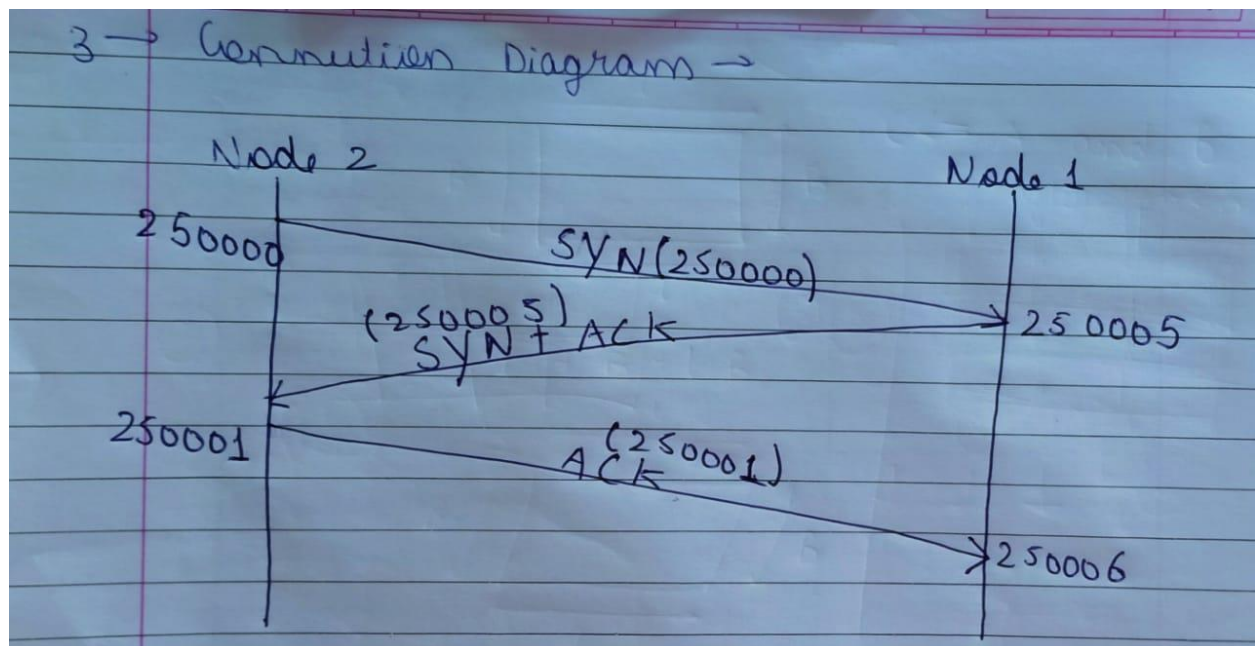 3 → Connution Diagram →
Node 2
Node 1
250000
SYN(250000)
(250005)
SYN + ACK
250005
250001
(250001)
ACK
250006